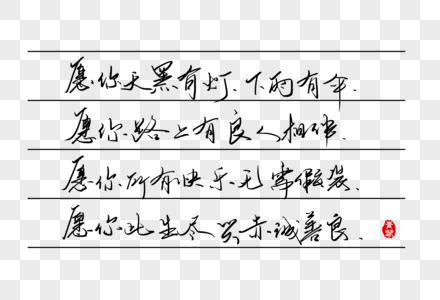 愿你天黑有灯、下雨有伞.
愿你路上有良人相伴.
愿你所有快乐无需假装、
愿你此生尽兴赤诚善良.